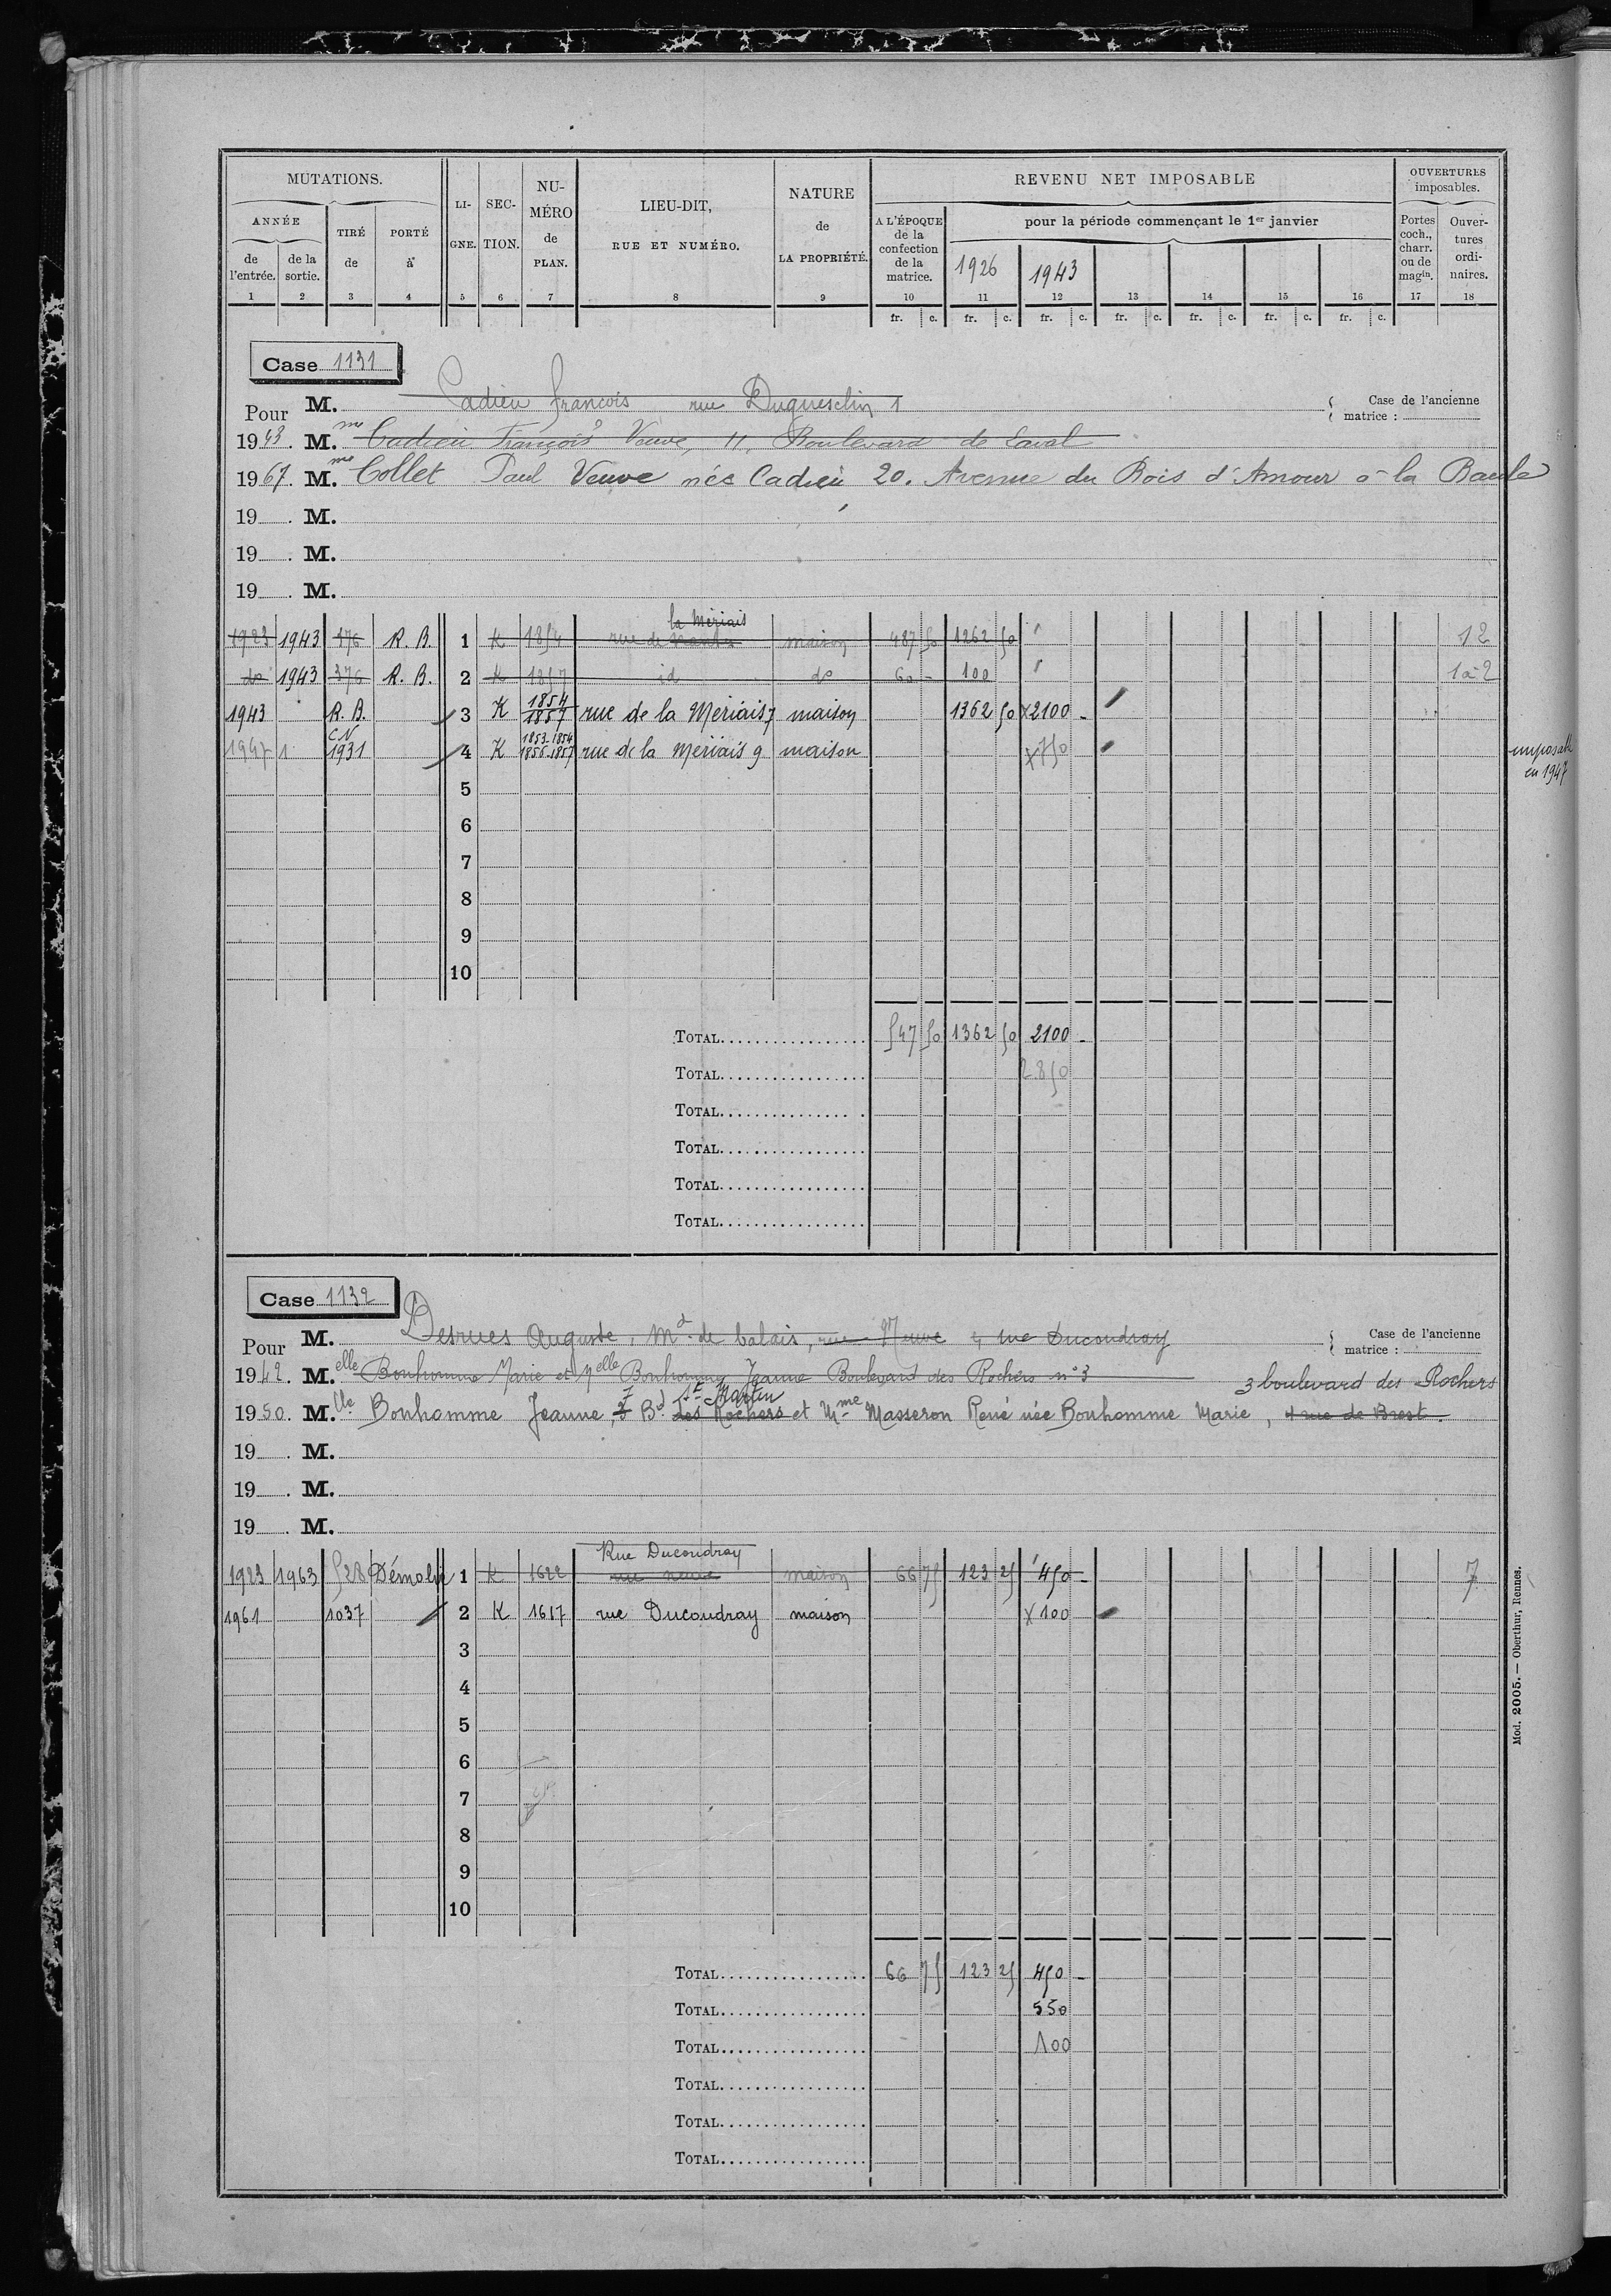 MUTATIONS. LIGNE. SECTION. NUMÉRO de PLAN. LIEU-DIT, RUE ET NUMÉRO. NATURE de LA PROPRIÉTÉ. REVENU NET IMPOSABLE OUVERTURES imposables.
ANNÉE TIRÉ de PORTÉ à A L'ÉPOQUE de la confection de la matrice. pour la période commençant le 1er janvier Portes coch., charr. ou de magin. Ouvertures ordinaires.
de l'entrée. de la sortie. 1926 1943
1 2 3 4 5 6 7 8 9 10 11 12 13 14 15 16 17 18
fr. c. fr. c. fr. c. fr. c. fr. c. fr. c. fr. c.
Case 1131
Pour M. Cadieu françois rue Duguesclin 1 Case de l'ancienne matrice :
1943. M.me Cadieu François Veuve, 11, Boulevard de Laval
1967. M.me Collet Paul Veuve née Cadieu 20. Avenue du Bois d'Amour à la Baule
19 . M.
19 . M.
19 . M.
la Mériais
1923 1943 376 R. B. 1 K 1854 rue de maison 487 50 1262 50 12
do 1943 376 R. B. 2 K 1857 id do 60 - 100 1à2
1943 R. B. 3 K 1854 1857 rue de la Meriais 7 maison 1362 50 x2100 -
1947 1 CN 1931 4 K 1853-1854 1856-1857 rue de la Meriais 9 maison x750 imposable en 1947
5
6
7
8
9
10
TOTAL 547 50 1362 50 2100 -
TOTAL 2850
TOTAL
TOTAL
TOTAL
TOTAL
Case 1132
Pour M. Desrues Auguste, Md. de balais, rue Neuve 4 rue Ducoudray Case de l'ancienne matrice :
1942. M.elle Bonhomme Marie et Melle Bonhomme Jeanne Boulevard des Rochers n° 3 3 boulevard des Rochers
St Martin
1950. M.lle Bonhomme Jeanne, Bd des Rochers et Mme Masseron René née Bonhomme Marie, 4 rue de Brest.
19 . M.
19 . M.
19 . M.
Rue Ducoudray
1923 1963 528 Démolie 1 K 1622 rue neuve maison 66 75 123 25 450 - 7
1961 1037 2 K 1617 rue Ducoudray maison x100
3
4
5
6
7
8
9
10
TOTAL 66 75 123 25 450 -
TOTAL 550
TOTAL 100
TOTAL
TOTAL
TOTAL
Mod. 2005. — Oberthur, Rennes.